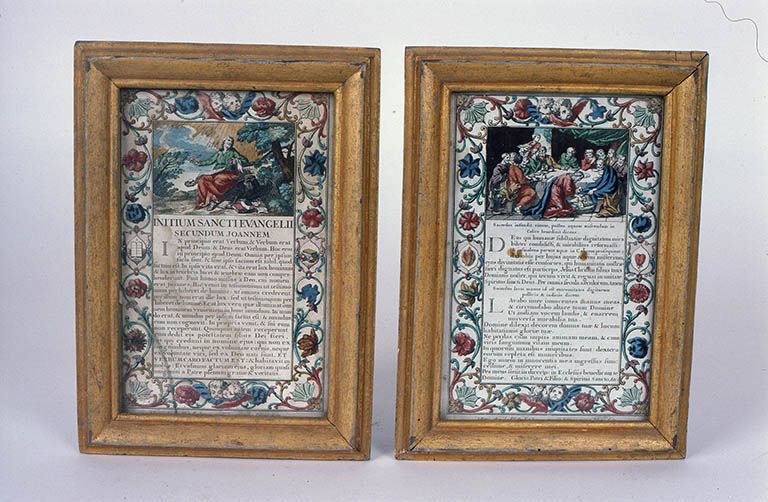 INITIUM SANCTI EVANGELII
SECUNDUM JOANNEM
IN principio erat Verbum, & Verbum erat
apud Deum & Deus erat Verbum. Hoc erat
in principio apud Deum. Omnia per ipsum
facta sunt, & sine ipso factum est nihil, quod
factum est. In ipso vita erat, & vita erat lux hominum
& lux in tenebris lucet & tenebræ eam non compre
henderunt. Fuit homo missus a Deo, cui nomen
erat Joannes. Hic venit in testimonium ut testimo
nium perhiberet de lumine, ut omnes crederent
per illum. non erat ille lux, sed ut testimonium per
hiberet de lumine. Erat lux vera quæ illuminat om
nem hominem venientem in hunc mundum. In mun
do erat, & mundus per ipsum factus est & mundus
eum non cognovit. In propria venit, & sui eum
non receperunt. Quotquot autem receperunt
eum dedit eis potestatem filios Dei fieri,
his qui credunt in nomine ejus, qui non ex
sanguinibus, neque ex voluntate carnis, neque
ex voluntate viri, sed ex Deo nati sunt. ET
VERBUM CARO FACTUM EST, & habitavit in
nobis. Et vidimus gloriam ejus, gloriam quasi
unigeniti a Patre plenum gratiæ & veritatis
Sacerdos infundit vinum, postea aquam miscendam in
Calice benedicit dicens.
DEus qui humanæ substantiæ dignitatem mira
biliter condidisti, & mirabilius reformasti:
da nobis per hujus aquæ & vini mysterium
ejus divinitatis esse consortes, qui humanitatis nostræ
fieri dignatus est particeps, Jesus Christus filius tuus
Dominus noster, qui tecum vivit & regnat in unitate
Spiritus sancti Deus. Per omnia sæcula sæculorum, Amen
LAvabo inter innocentes manus meas &
circumdabo altare tuum Domine
Ut audiam vocem laudis, & enarrem
universa mirabilia tua.
Domine dilexi decorem domus tuæ & locum
habitationis gloriæ tuæ.
Ne perdas cum impiis animam meam, & cum
viris sanguinum vitam meam.
In quorum manibus iniquitates sunt: dextera
eorum repleta est muneribus.
Ego autem in innocentia mea ingressus sum:
redime, & miserere mei.
Pes meus stetit in directo: in Ecclesiis benedicam te
Domine. Gloria Patri & Filio, & Spiritui Sancto, &c.